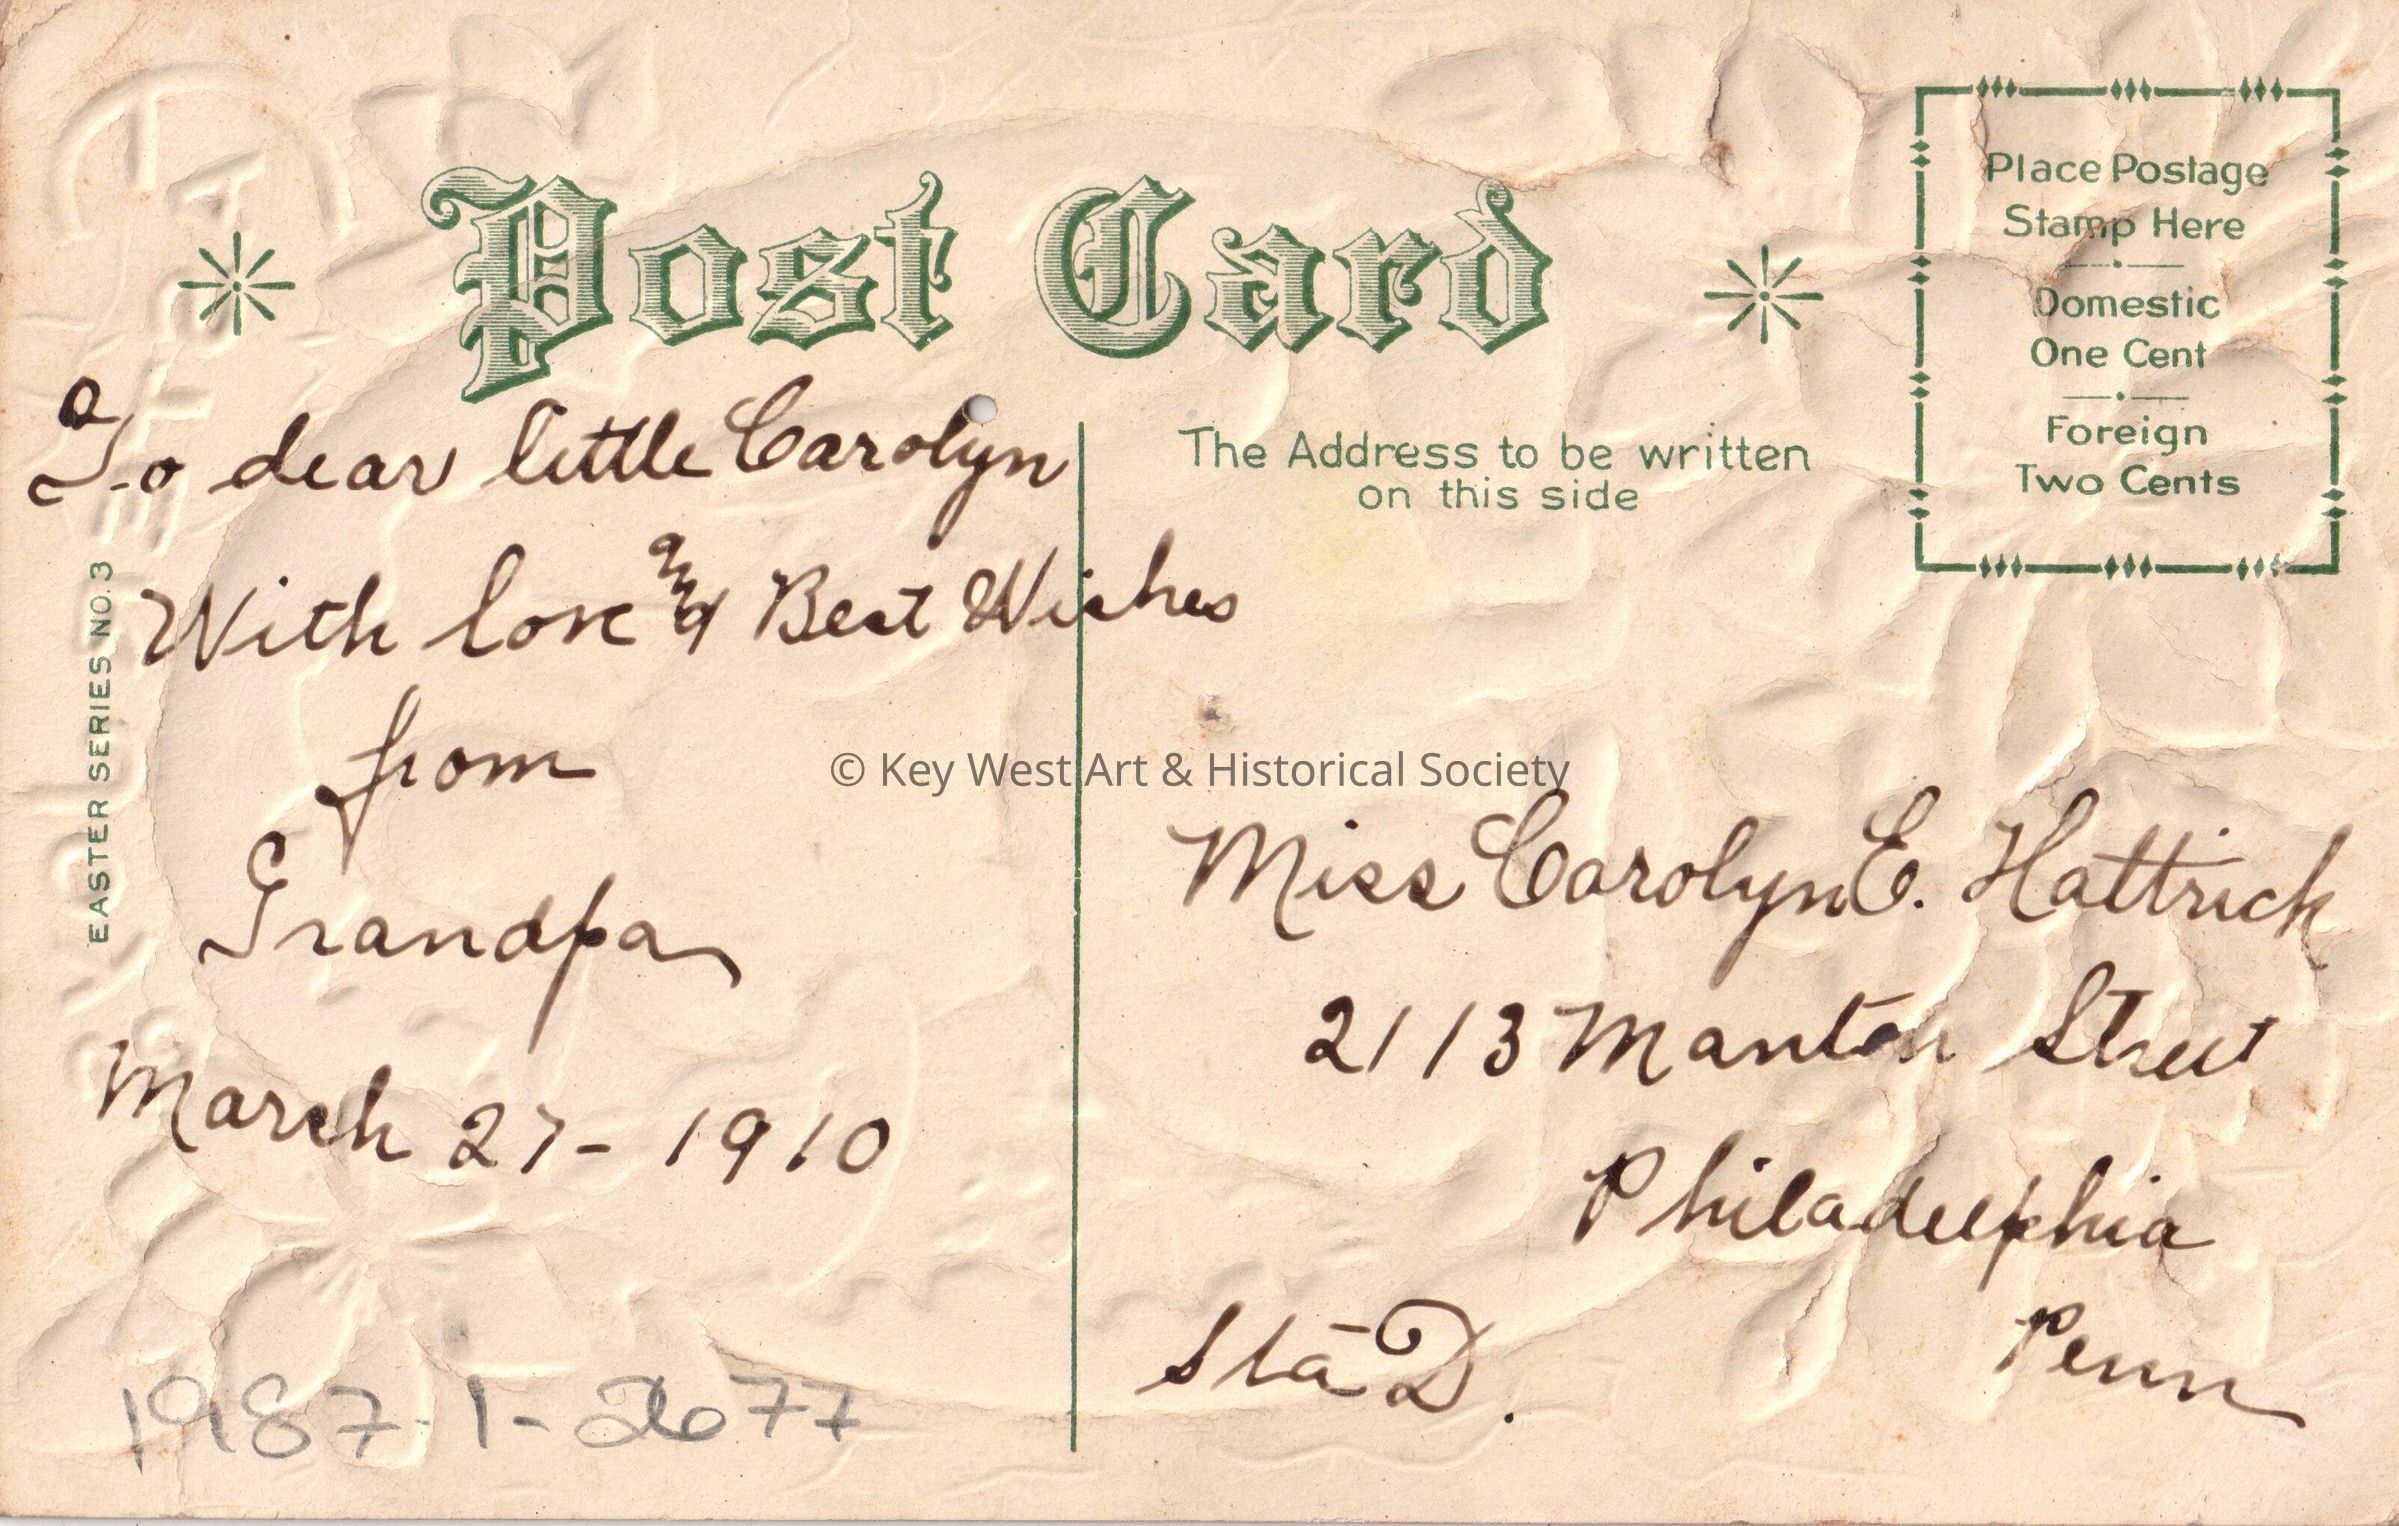 Post Card
Place Postage
Stamp Here
Domestic
One Cent
Foreign
Two Cents
The Address to be written
on this side
EASTER SERIES NO. 3
To dear little Carolyn
With love and Best Wishes
from
Grandpa
March 27 - 1910
© Key West Art & Historical Society
Miss Carolyn E. Hattrick
2113 Manton Street
Philadelphia
Penn
Sta D.
1987-1-2677